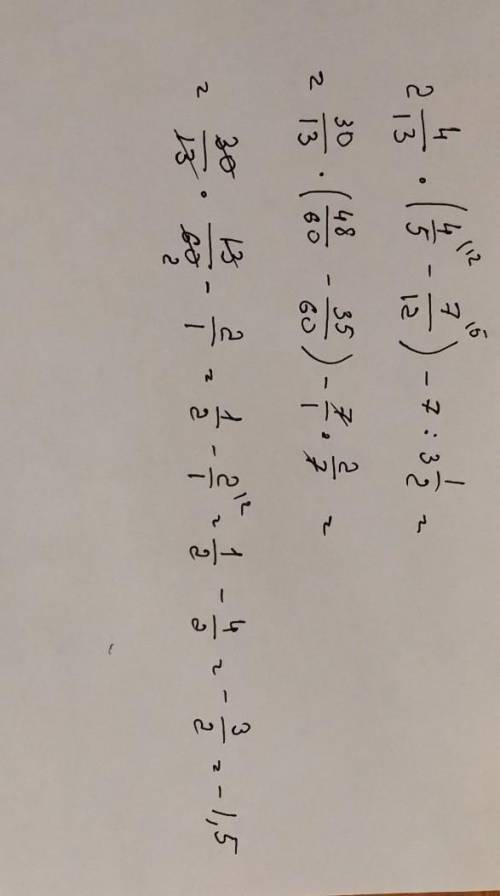 2 4/13 · (4/5 \12 - 7/12 \5) - 7 : 3 1/2 =
= 30/13 · (48/60 - 35/60) - 7/1 · 2/7 =
= 30/13 · 13/60 2 - 2/1 = 1/2 - 2/1 \2 = 1/2 - 4/2 = - 3/2 = - 1,5